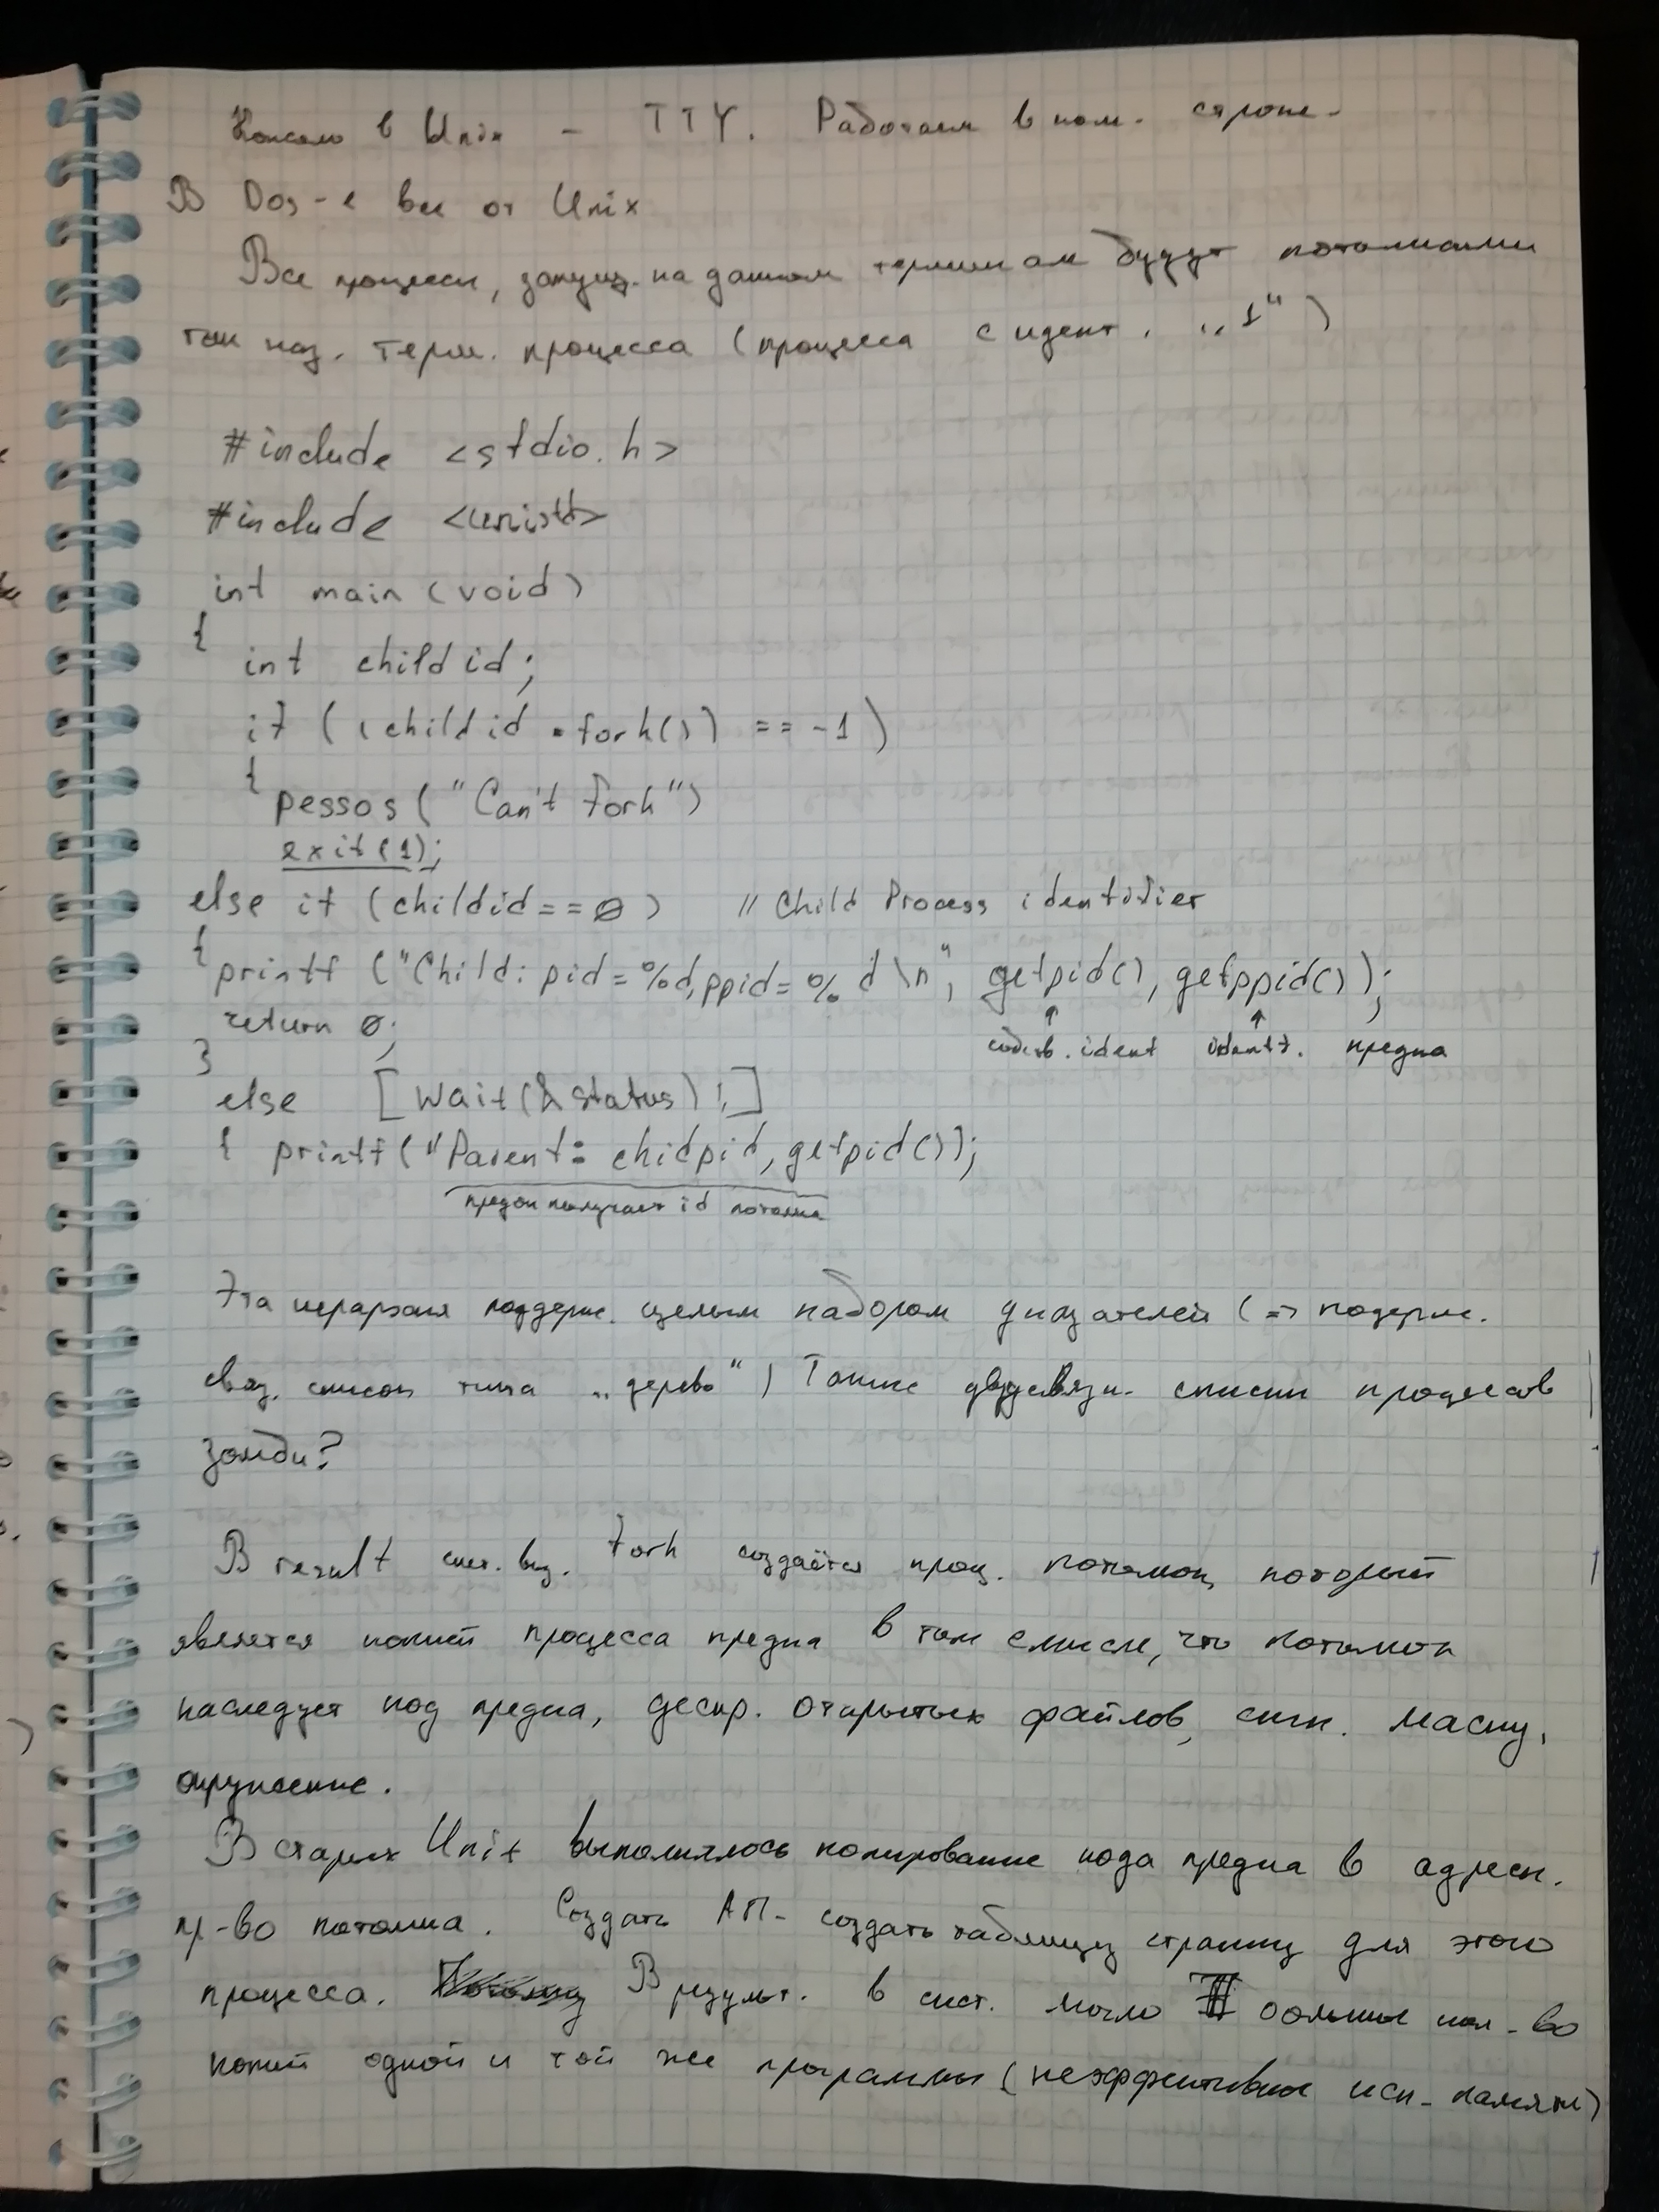 Консоль в Unix – TTY. Работаем в ком. строке.
В Dos-е все от Unix
Все процессы, запущ. на данном терминам будут потомками
так наз. терм. процесса (процесса с идент. „1“)
#include <stdio.h>
#include <unistd>
int main (void)
{
int childid;
if ((childid = fork()) == -1)
{ perror ("Can't fork")
exit(1);
else if (childid==0) // Child Process identifier
{ printf ("Child: pid=%d, ppid=%d\n", getpid(), getppid());
return 0;
собств. ident identif. предка
}
else [wait(&status);]
{ printf("Parent: chidpid, getpid());
предок получает id потомка
Эта иерархия поддерж. целым набором указателей (=> подерж.
связ. список типа „дерево“) Также двусвязн. списки процессов
зомби?
В result сист. выз. fork создаётся проц. потомок, который
является копией процесса предка в том смысле, что потомок
наследует код предка, дескр. открытых файлов, сигн. маску,
окружение.
В старых Unix выполнялось копирование кода предка в адресн.
пр-во потомка. Создать АП - создать таблицу страниц для этого
процесса. В результ. в сист. могло большое кол-во
копий одной и той же программы (неэффективное исп. памяти)